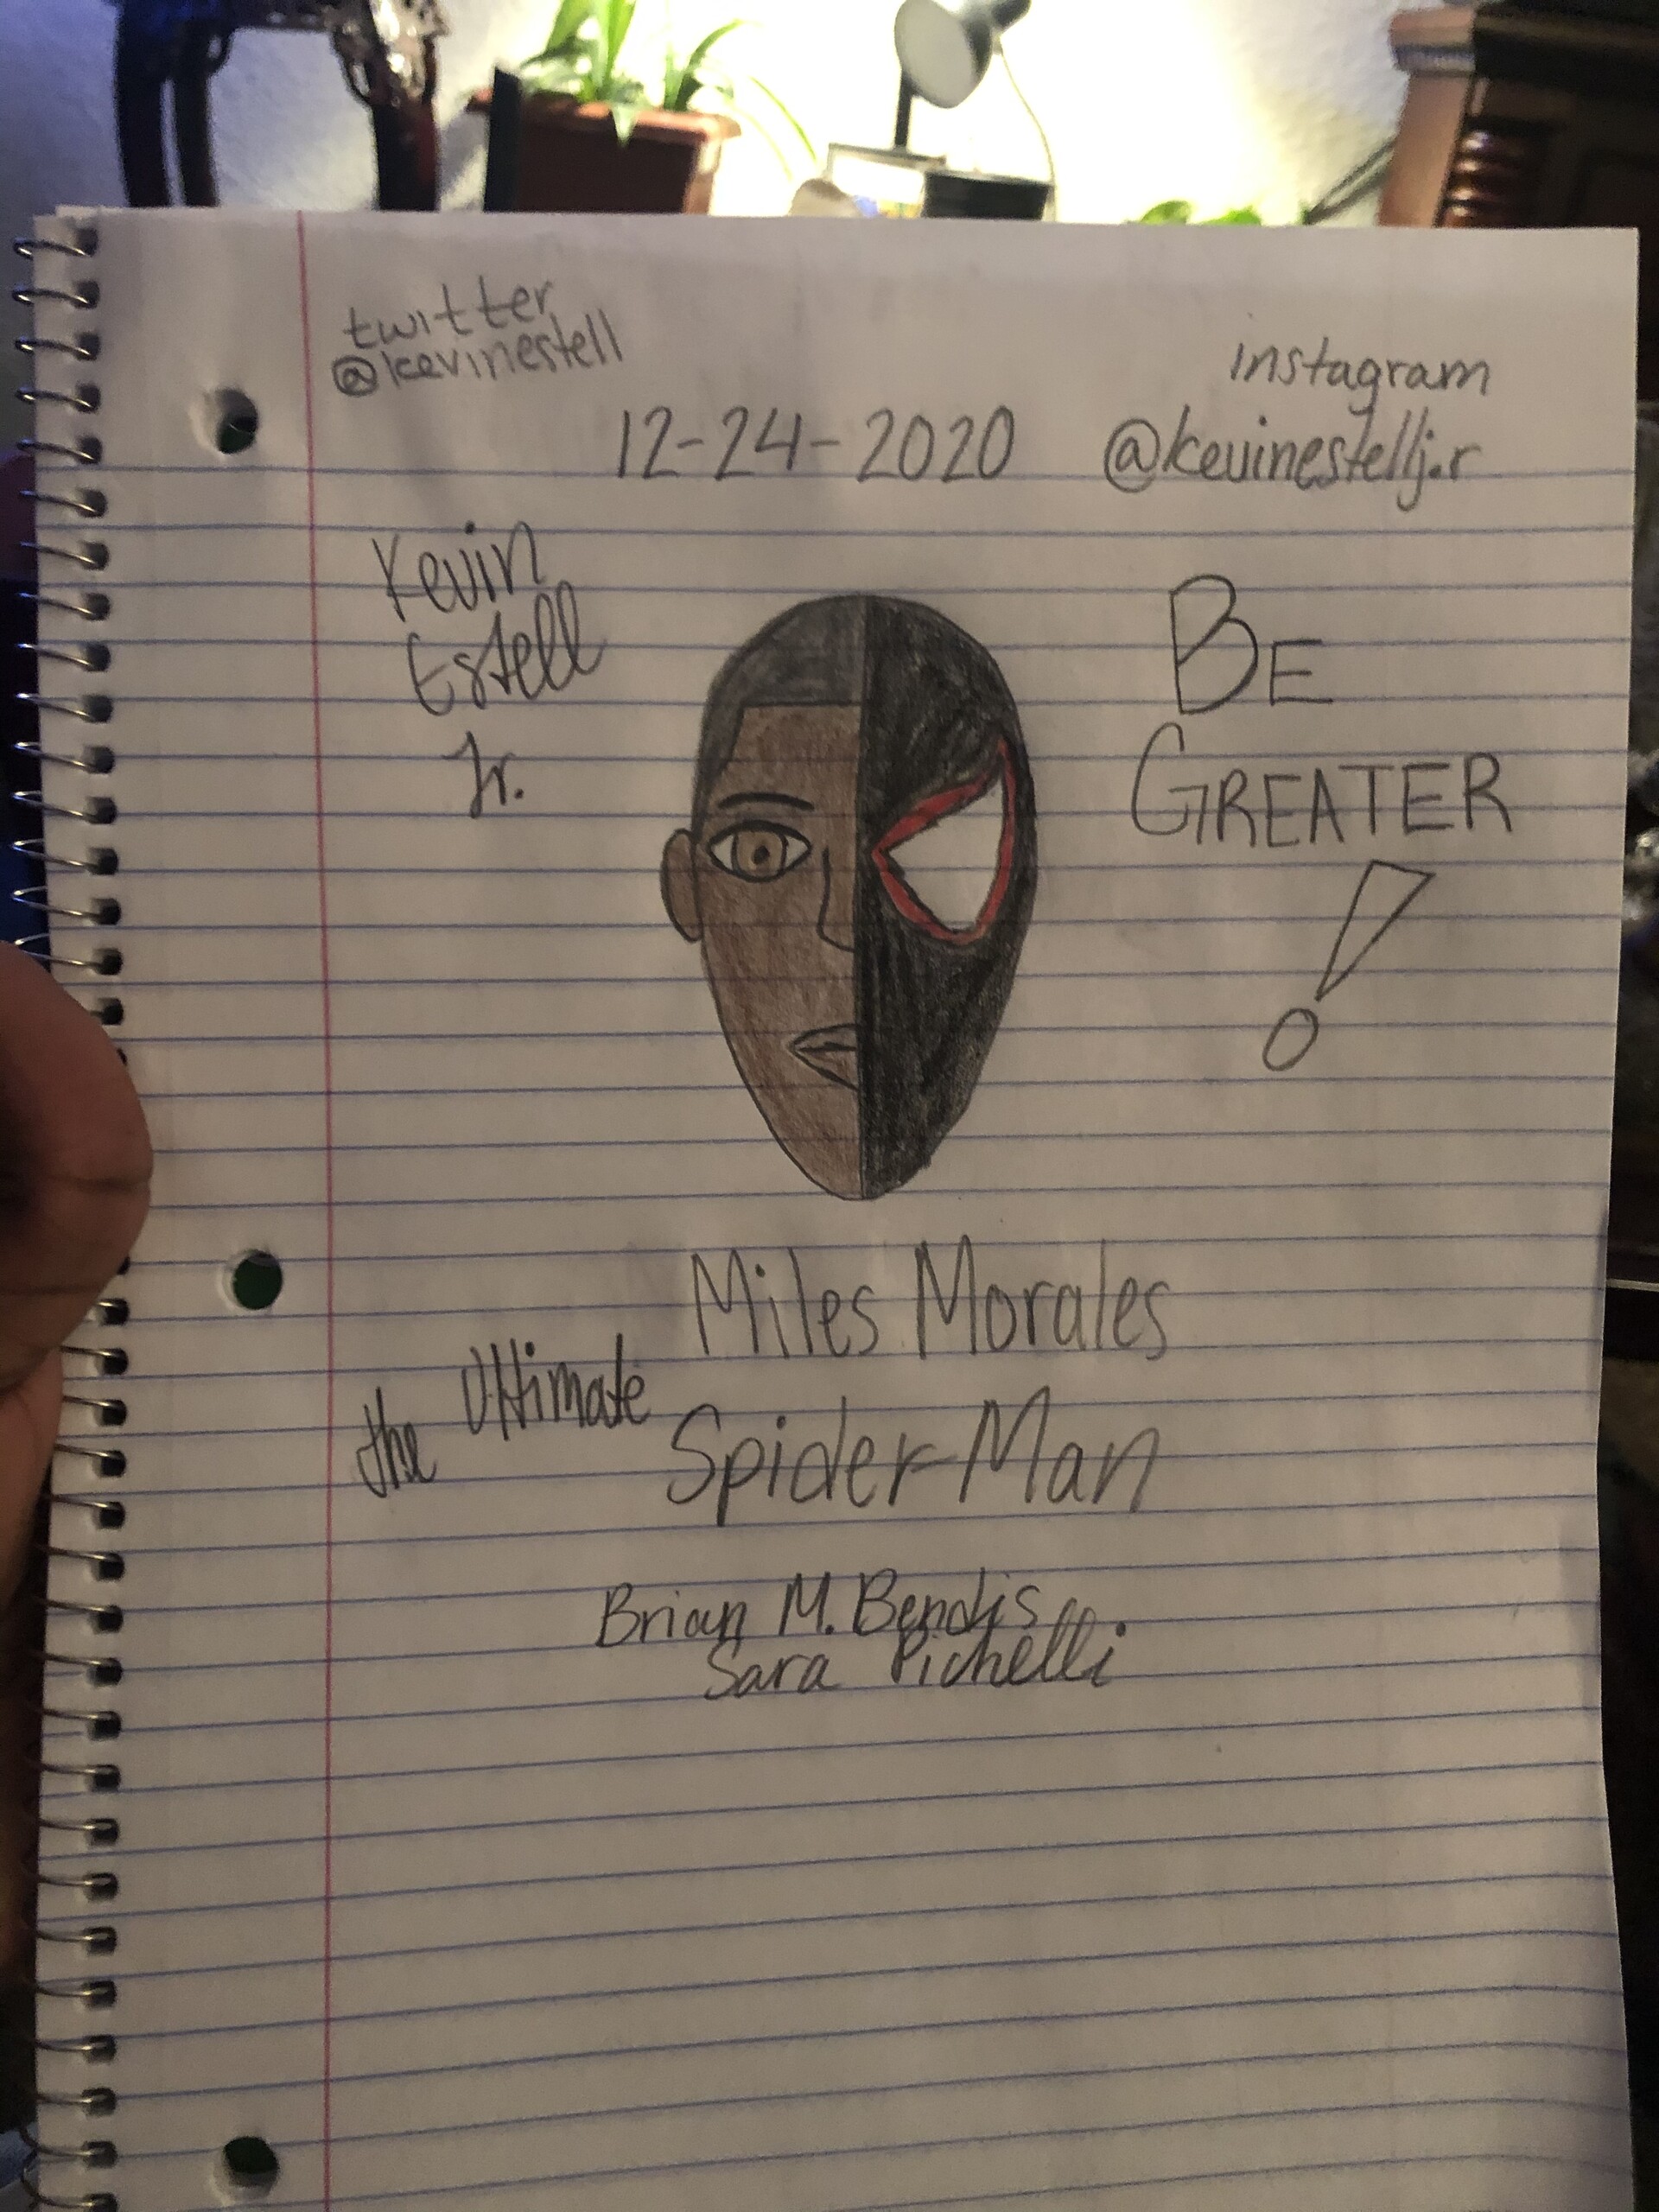 twitter
@kevinestell
instagram
@kevinestellj.r
12-24-2020
Kevin
Estell
Jr.
BE
GREATER
!
Miles Morales
the Ultimate Spider-Man
Brian M. Bendis
Sara Pichelli